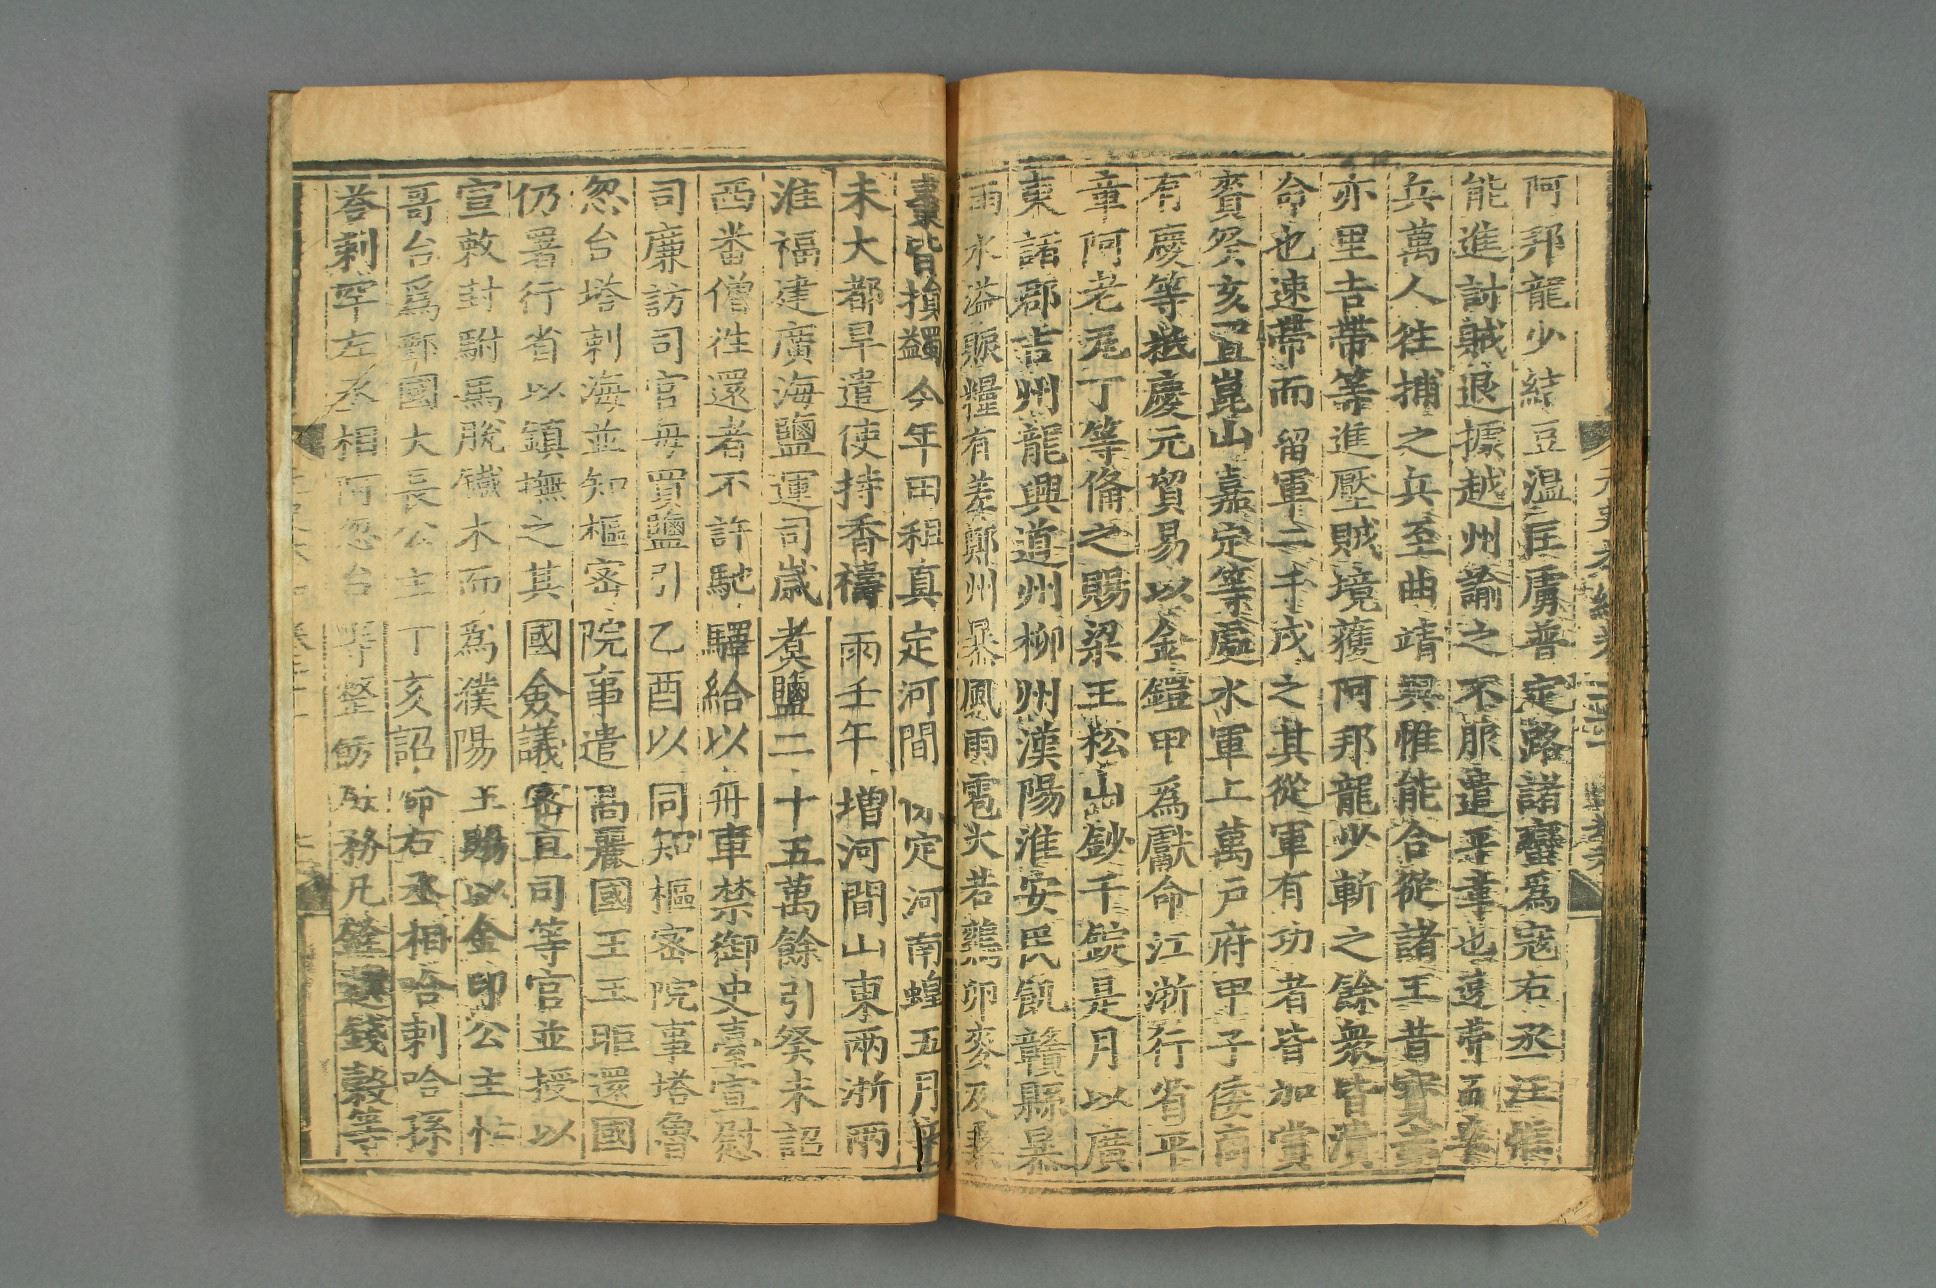 阿邦龍少結豆溫匡虜普定路諸蠻爲寇右丞汪惟
能進討賊退據越州諭之不服遣平章也速帶而率
兵萬人往捕之兵至曲靖與惟能合從諸王昔寶赤
亦里吉帶等進壓賊境獲阿邦龍少斬之餘衆皆潰
命也速帶而留軍二千戍之其從軍有功者皆加賞
賚癸亥置崑山嘉定等處水軍上萬戶府甲子倭商
有慶等抵慶元貿易以金鎧甲爲獻命江浙行省平
章阿老瓦丁等備之賜梁王松山鈔千錠是月以廣
東諸郡吉州龍興道州柳州漢陽淮安民饑贛縣暴
雨水溢賑糧有差鄭州暴風雨雹大若雞卵麥及桑
棗皆損蠲今年田租真定河間保定河南蝗五月辛
未大都旱遣使持香禱雨壬午增河間山東兩浙兩
淮福建廣海鹽運司歲煑鹽二十五萬餘引癸未詔
西番僧往還者不許馳驛給以舟車禁御史臺宣慰
司廉訪司官毋買鹽引乙酉以同知樞密院事塔魯
忽台塔剌海並知樞密院事遣高麗國王王昛還國
仍署行省以鎮撫之其國僉議密直司等官並授以
宣敕封駙馬脫鐵木而爲濮陽王賜以金印公主忙
哥台爲鄆國大長公主丁亥詔命右丞相哈剌哈孫
荅剌罕左丞相阿忽台等整飭庶務凡銓選錢穀等